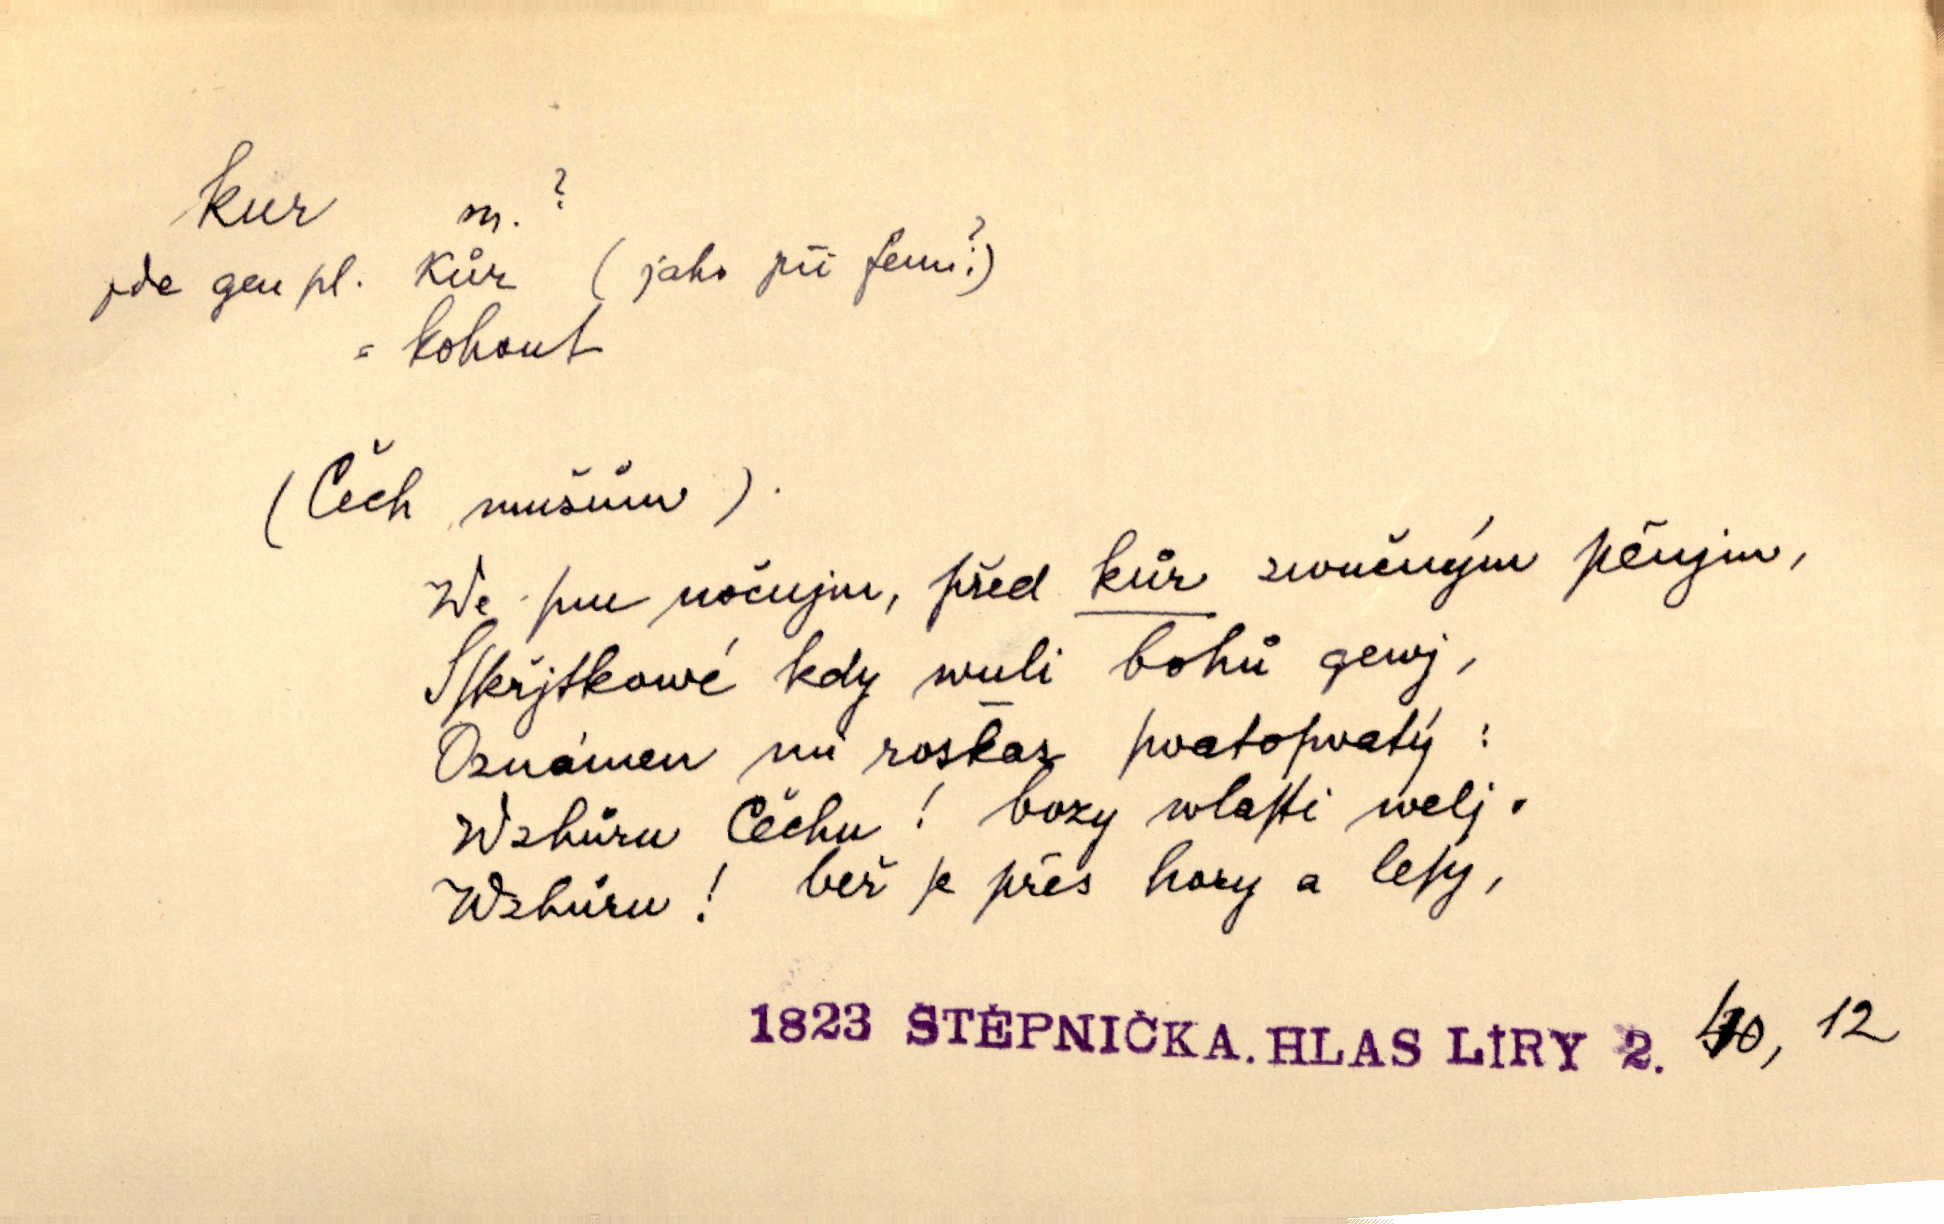 kur m.?
zde gen pl. kůr (jako při fem.?)
= kohout
(Čech musům).
We ſnu nočnjm, před kůr zwučným pěnjm,
Sſkřjtkowé kdy wuli bohů gewj,
Oznámen mi roskaz ſwatoſwatý:
Wzhůru Čechu! bozy wlaſti welj.
Wzhůru! beř ſe přes hory a leſy,
1823 ŠTĚPNIČKA. HLAS LÍRY 2. , 12